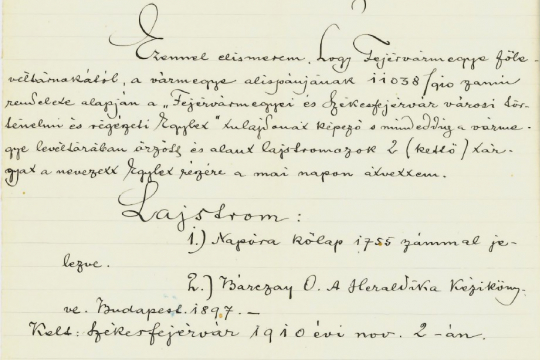 Ezennel elismerem, hogy Fejérvármegye főle-
véltárnokától, a vármegye alispánjának 11038/910 számu
rendelete alapján a „Fejérvármegyei és Székesfejérvár városi tör-
ténelmi és régészeti Egylet" tulajdonát képező s mindeddig a várme-
gye levéltárában őrzött és alant lajstromozok 2 (kettő) tár-
gyat a nevezett Egylet részére a mai napon átvettem.
Lajstrom:
1.) Napóra kőlap 1755 zámmal je-
lezve.
2.) Bárczay O. A Heraldika Kéziköny-
ve. Budapest. 1897. —
Kelt: Székesfejérvár 1910 évi nov. 2-án.